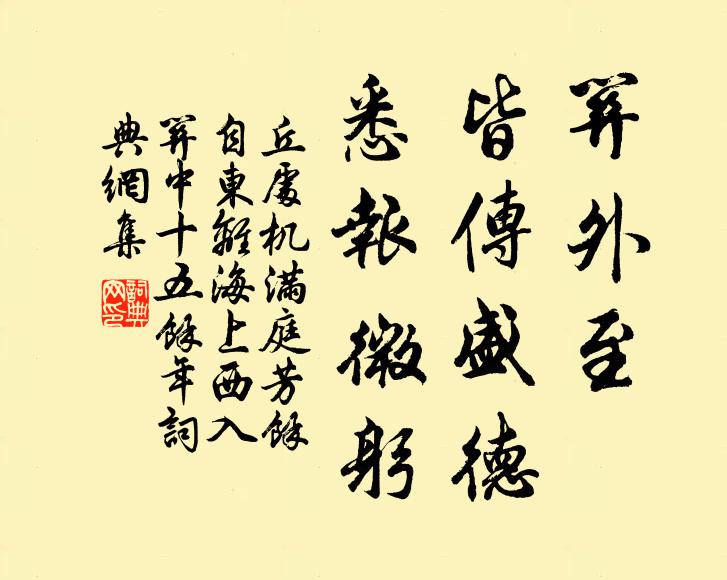 關外至
皆傳盛德
悉報微躬
丘處机滿庭芳餘
自東離海上西入
關中十五餘年詞
典網集
詞典
网印